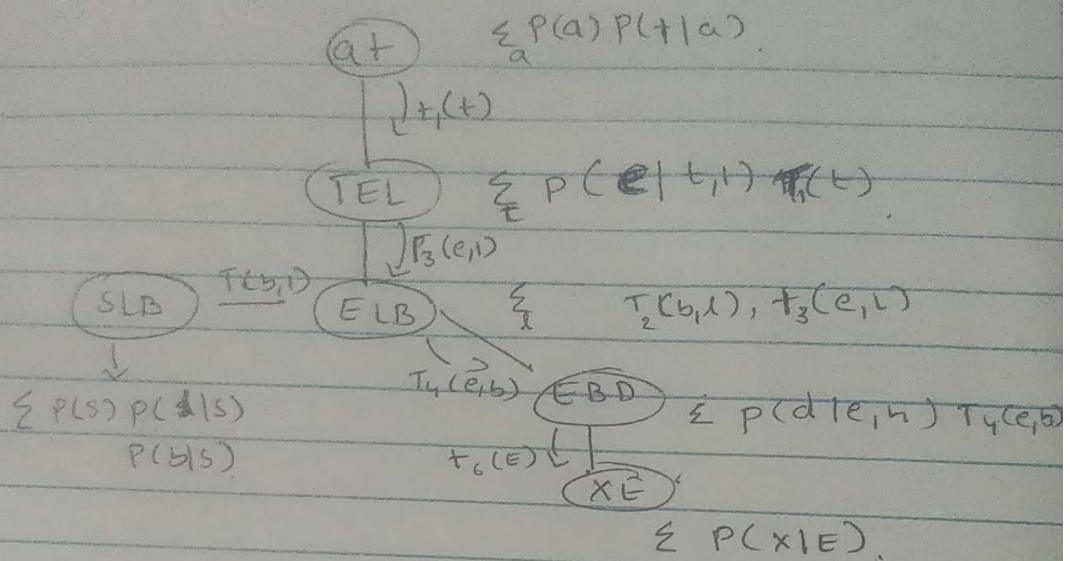 at Σ_a P(a) P(t|a).
t₁(t)
TEL Σ_t P(e|t,l) T₁(t).
P₃(e,l)
SLB T(b,l) ELB Σ_l T₂(b,l), t₃(e,l)
T₄(e,b) EBD Σ p(d|e,h) T₄(e,b)
Σ P(s) P(l|s)
P(b|s) t₆(E)
XE
Σ P(X|E).